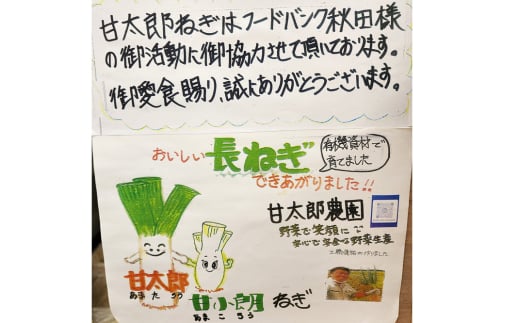 甘太郎ねぎはフードバンク秋田様
の御活動に御協力させて頂いております。
御愛食賜り、誠にありがとうございます。
おいしい長ねぎ
できあがりました!!
有機資材で
育てました
甘太郎農園
野菜で笑顔に
安心で
野菜生産
甘太郎
あまたろう
甘小朗ねぎ
あまころう